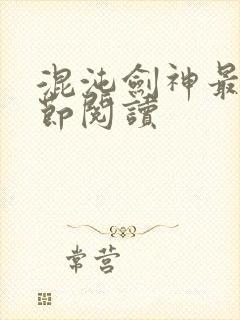 混沌劍神最
節閱讀
常营